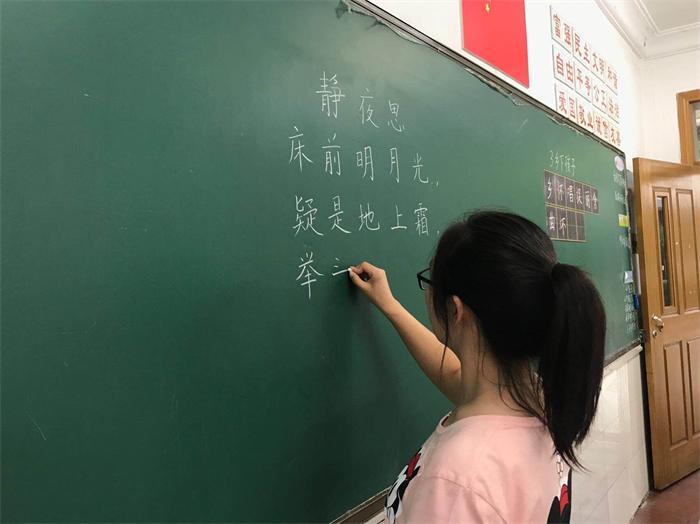 静夜思
床前明月光，
疑是地上霜，
举
富强 民主 文明 和谐
自由 平等 公正 法治
爱国 敬业 诚信 友善
3 乡下孩子